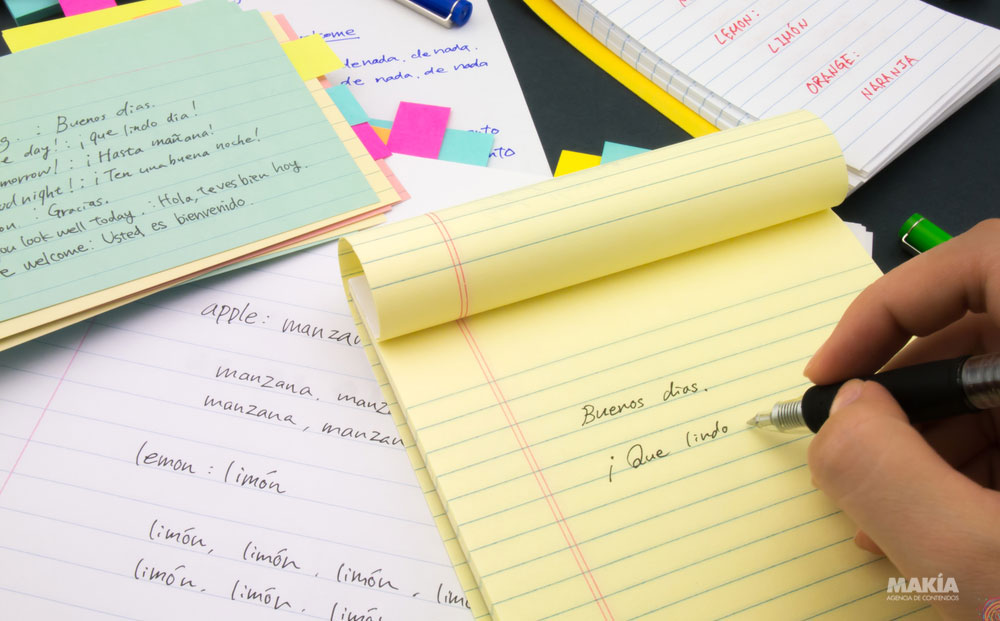 : Buenos dias.
day! : ¡que lindo dia!
! : ¡Hasta mañana!
night! : ¡Ten una buena noche!
: Gracias.
look well today. : Hola, te ves bien hoy.
welcome: Usted es bienvenido.
de nada, de nada
LEMON:
LIMÓN
ORANGE:
NARANJA
apple:
manzana,
manzana,
lemon : limón
limón, limón, limón,
limón, limón, limón
Buenos dias.
¡Que lindo
MAKÍA
AGENCIA DE CONTENIDOS